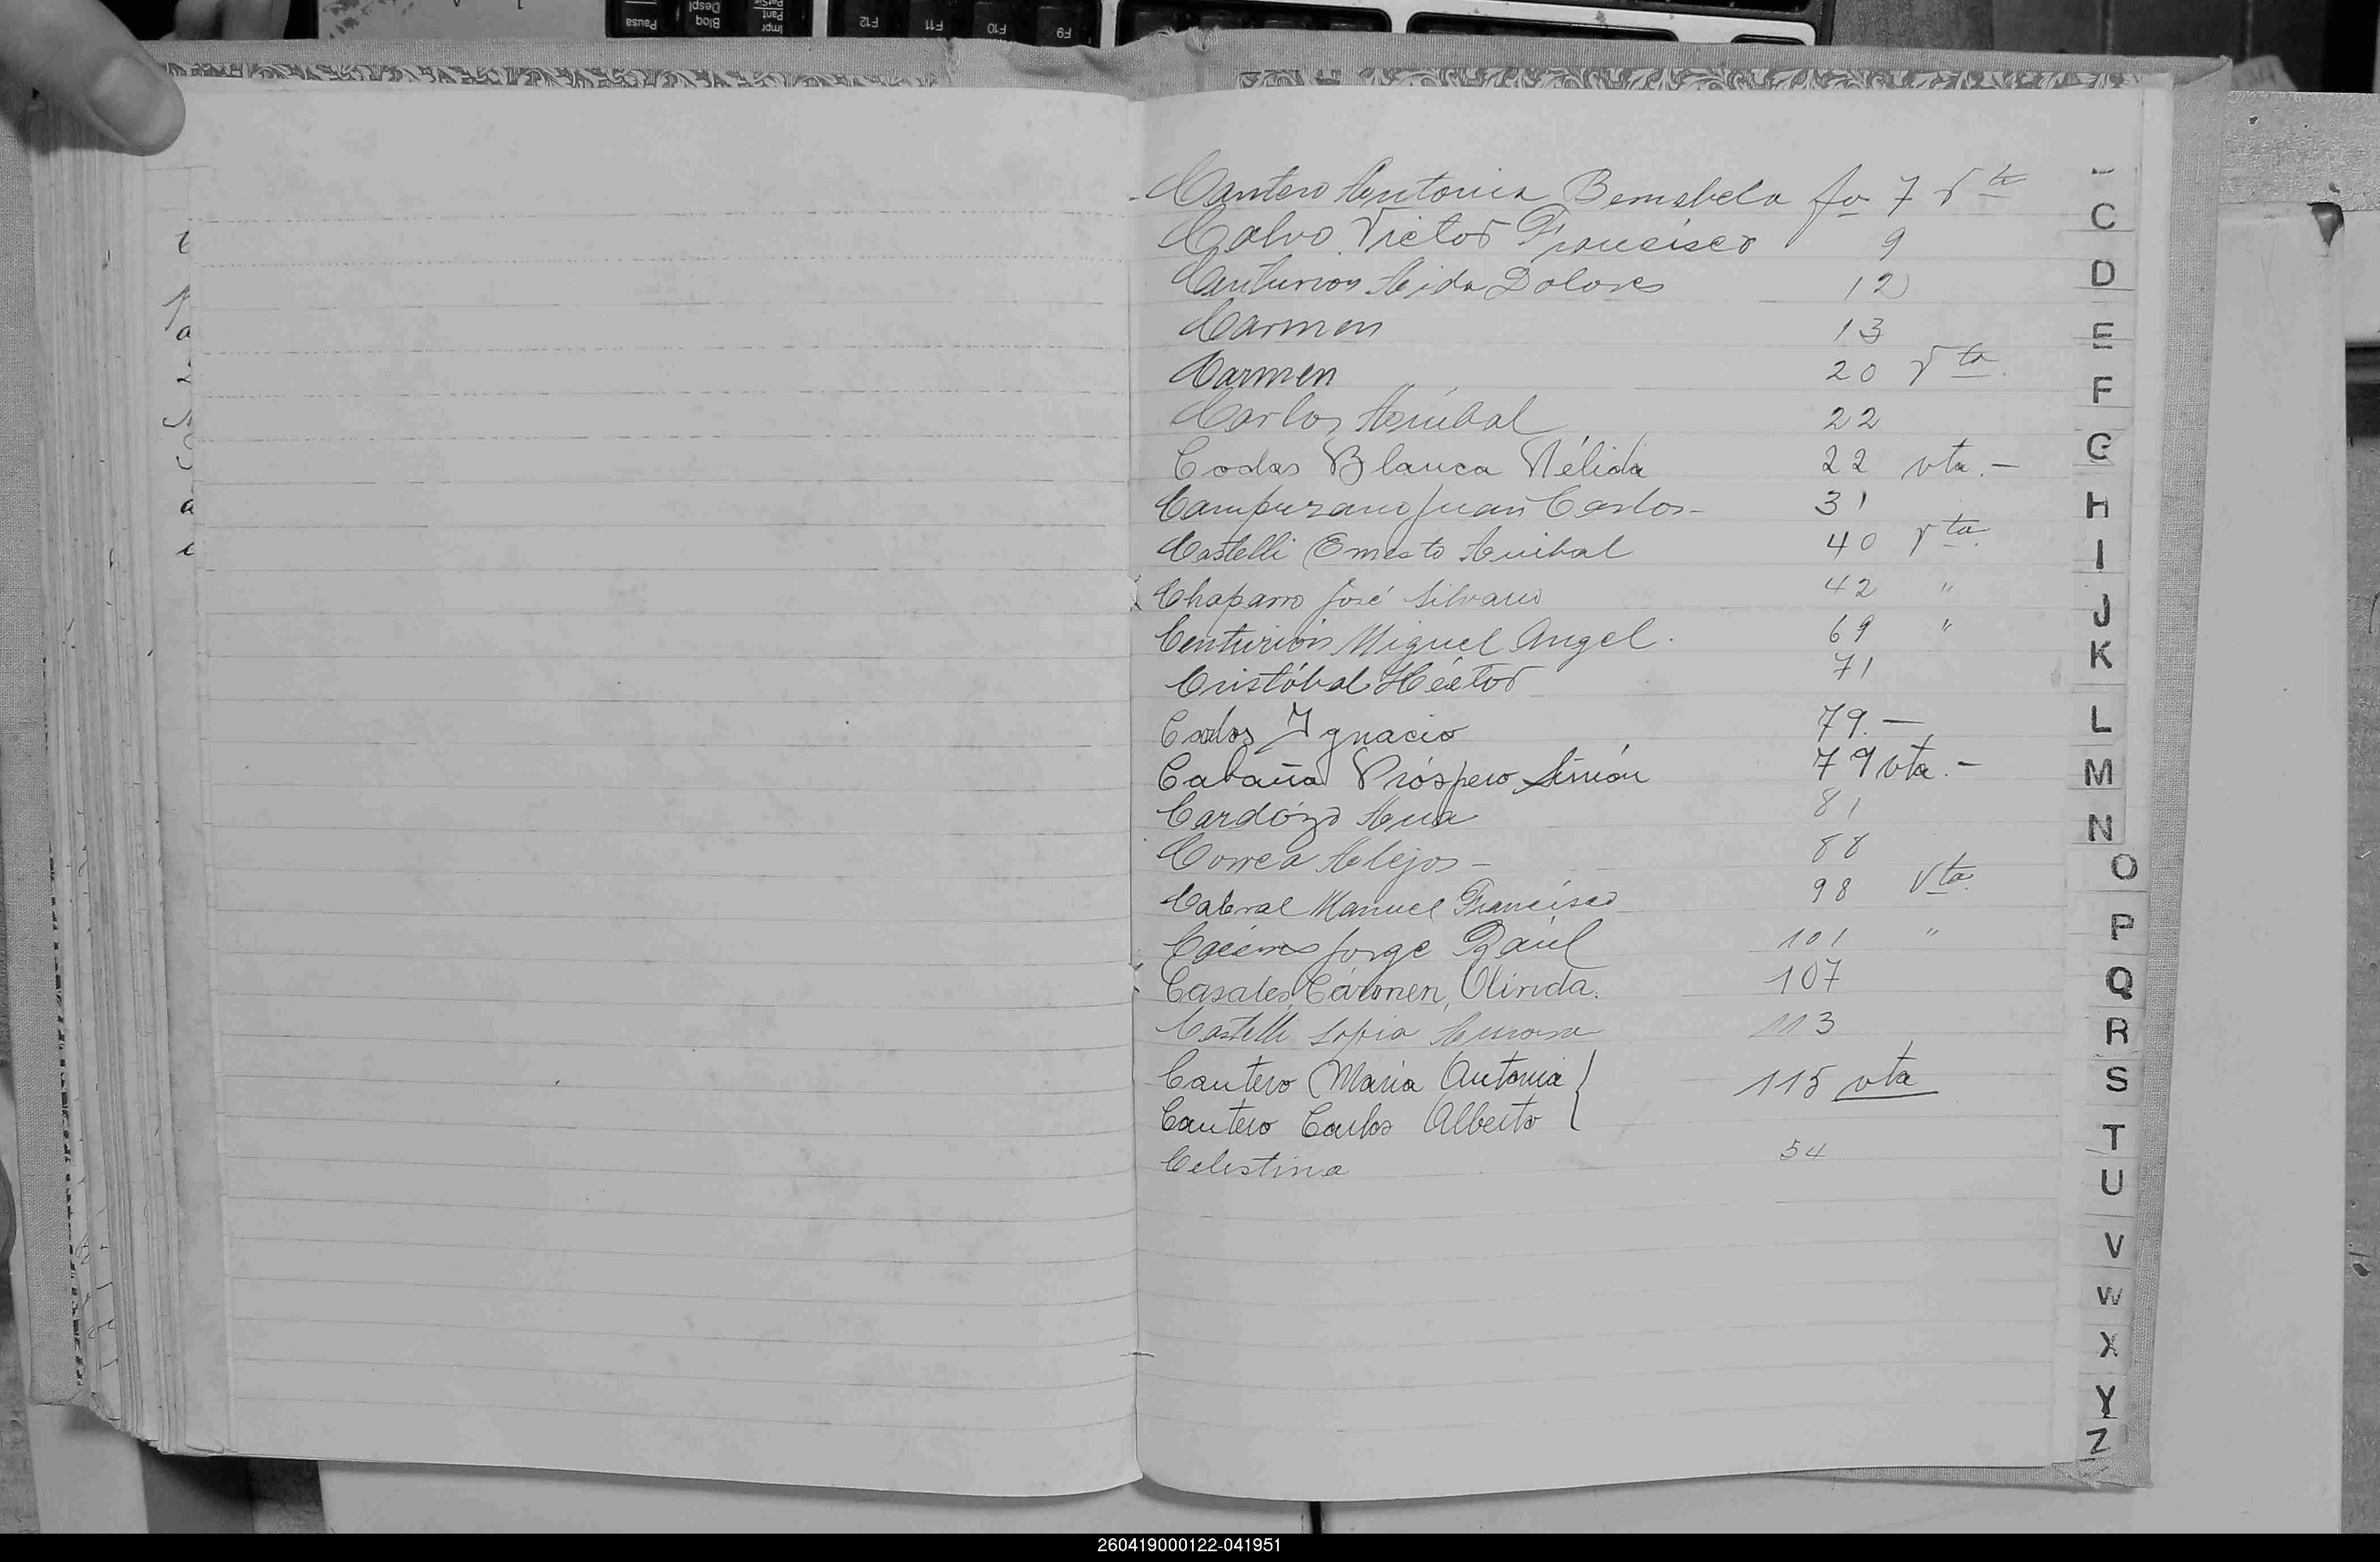 Cantero Antonia Bernabela fo 7 Vta
Calvo Victor Francisco 9
Centurion Aida Dolores 12
Carmen 13
Carmen 20 Vta.
Carlos Anibal 22
Codas Blanca Nélida 22 vta.-
Campuzano Juan Carlos- 31
Castelli Ernesto Anibal 40 Vta.
Chaparro José Silvano 42 "
Centurión Miguel Angel. 69 "
Cristóbal Héctor 71
Codas Ignacio 79.-
Cabaña Próspero Simón 79 vta.-
Cardózo Ana 81
Correa Alejos- 88
Cabral Manuel Francisco 98 Vta.
Cáceres Jorge Raúl 101 "
Casales, Cármen, Olinda. 107
Castelli Sofia 113
Cantero Maria Antonia } 115 vta
Cantero Carlos Alberto
Celestina 54
C
D
E
F
G
H
I
J
K
L
M
N
O
P
Q
R
S
T
U
V
W
X
Y
Z
Pausa
Bloq
Despl
Impr
Pant
PetSis
F12
F11
F10
F9
260419000122-041951